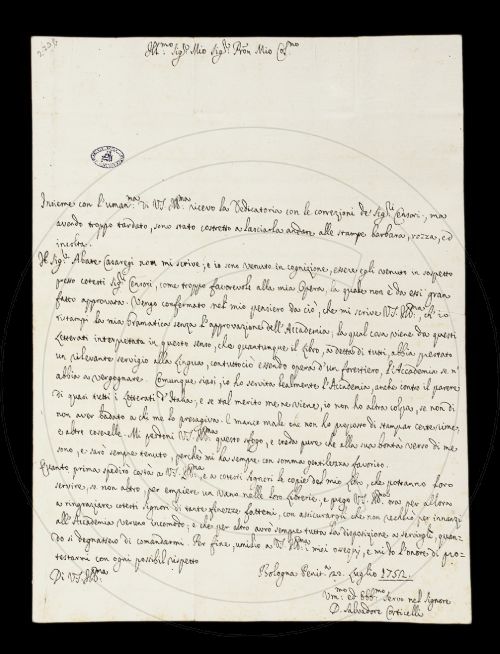 Ill.mo Sig.r Mio Sig.r Pron Mio Col.mo
Insieme con l'uman.ma di VS. Ill.ma ricevo la Dedicatoria con le correzioni de' Sig.ri Censori, ma
avendo troppo tardato, sono stato costretto a lasciarla andare alle stampe barbara, rozza, ed
incolta.
Il Sig.r Abate Casaregi non mi scrive, e io sono venuto in cognizione, esser egli venuto in sospetto
presso cotesti Sig.ri Censori, come troppo favorevole alla mia Opera, la quale non è da essi gran
fatto approvata. Vengo confermato nel mio pensiero da ciò, che mi scrive VS. Ill.ma ch'io
ristampi la mia Gramatica senza l'approvazione dell'Accademia, la qual cosa viene da questi
Letterati interpretata in questo senso, che quantunque il Libro, a detto di tutti, abbia prestato
un rilevante servigio alla Lingua, contuttociò essendo opera d'un forestiero, l'Accademia se n'
abbia a vergognare. Comunque siasi, io ho servita lealmente l'Accademia, anche contro il parere
di quasi tutti i Letterati d'Italia, e se tal merito me ne viene, io non ho altra colpa, se non di
non aver badato a chi me lo presagiva. Il manco male che non ho preteso di stampar certissime,
e altre coserelle. Mi perdoni VS. Ill.ma questo sfogo, e creda pure che alla sua bontà verso di me
sono, e sarò sempre tenuto, perchè mi ha sempre con somma gentilezza favorito.
Quanto prima spedirò costà a VS. Ill.ma, e a cotesti Signori le copie del mio Libro, che potranno loro
servire, se non altro, per empiere un vano nelle loro Librerie, e prego VS. Ill.ma ora per allora
a ringraziare cotesti Signori di tante finezze fattemi, con assicurargli che non recherò per innanzi
all'Accademia veruno incomodo, e che per altro avrò sempre tutta la disposizione a servirgli, quan-
do si degnassero di comandarmi. Per fine, umilio a VS. Ill.ma i miei ossequj, e mi do l'onore di pro-
testarmi con ogni possibil rispetto
Di VS. Ill.ma
Bologna Penit.a 20. Luglio 1752.
Um.mo ed Obb.mo Servo nel Signore
D. Salvadore Corticelli